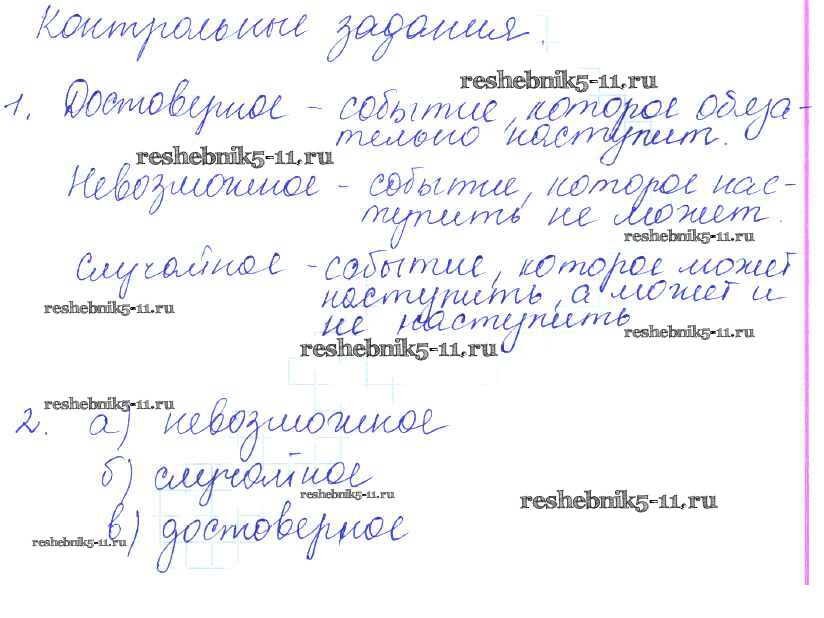 Контрольные задания.
reshebnik5-11.ru
1. Достоверное - событие, которое обяза-
тельно наступит.
reshebnik5-11.ru
Невозможное - событие, которое нас-
тупить не может.
reshebnik5-11.ru
Случайное - событие, которое может
наступить, а может и
reshebnik5-11.ru
не наступить
reshebnik5-11.ru
reshebnik5-11.ru
reshebnik5-11.ru
2. а) невозможное
б) случайное
reshebnik5-11.ru
reshebnik5-11.ru
в) достоверное
reshebnik5-11.ru